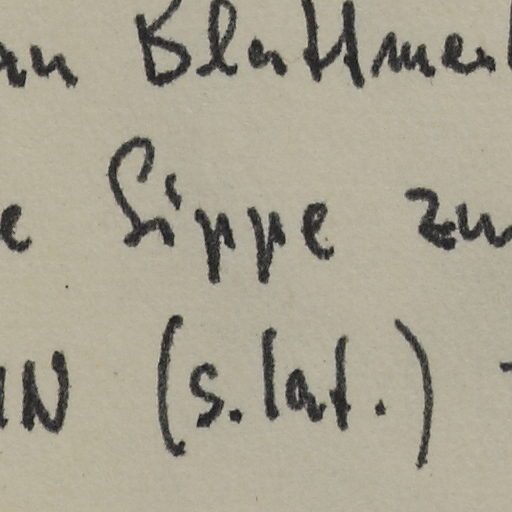 an Blattmerk
e Sippe zu
N (s.lat.) -